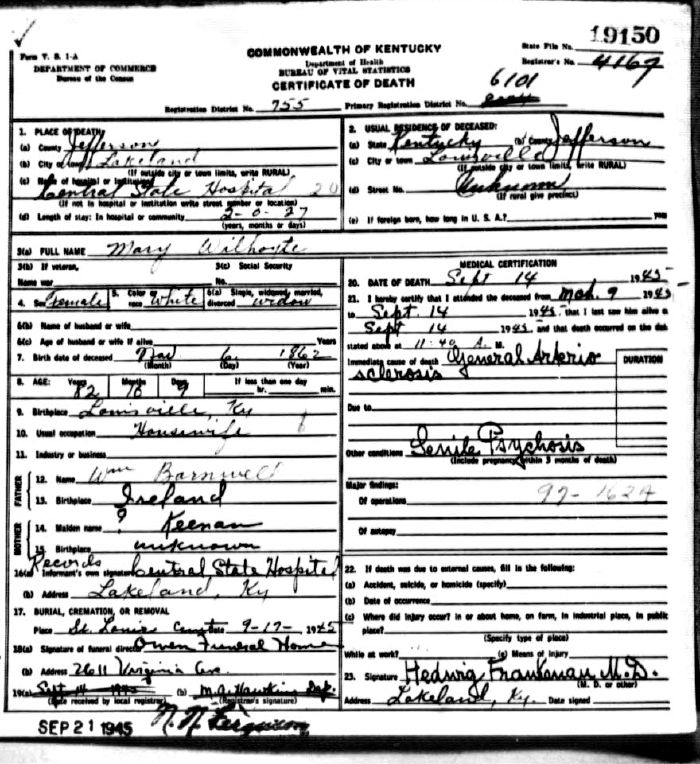 19150
Form V. S. 1-A
DEPARTMENT OF COMMERCE
Bureau of the Census
COMMONWEALTH OF KENTUCKY
Department of Health
BUREAU OF VITAL STATISTICS
CERTIFICATE OF DEATH
State File No.
Registrar's No. 4167
6101
Registration District No. 755 Primary Registration District No.
1. PLACE OF DEATH
(a) County Jefferson
(b) City or town Lakeland
(If outside city or town limits, write RURAL)
(c) Name of hospital or institution
Central State Hospital 20
(If not in hospital or institution write street number or location)
(d) Length of stay: In hospital or community 2-0-27
(years, months or days)
2. USUAL RESIDENCE OF DECEASED:
(a) State Kentucky (b) County Jefferson
(c) City or town Louisville
(If outside city or town limits, write RURAL)
(d) Street No. Unknown
(If rural give precinct)
(e) If foreign born, how long in U. S. A.? years
3(a) FULL NAME Mary Wilhoyte
3(b) If veteran, 3(c) Social Security
Name war No.
4. Sex Female 5. Color or race White 6(a) Single, widowed, married, divorced widow
6(b) Name of husband or wife
6(c) Age of husband or wife if alive Years
7. Birth date of deceased Nov 6 1862
(Month) (Day) (Year)
8. AGE: Years Months Days If less than one day
82 10 9 hr. min.
9. Birthplace Louisville, Ky
10. Usual occupation Housewife
11. Industry or business
FATHER
12. Name Wm Barnwell
13. Birthplace Ireland
MOTHER
14. Maiden name ? Keenan
15. Birthplace unknown
Records
16(a) Informant's own signature Central State Hospital
(b) Address Lakeland, Ky
17. BURIAL, CREMATION, OR REMOVAL
Place St. Louis Date 9-17- 1945
18(a) Signature of funeral director Owen Funeral Home
(b) Address 2611 Virginia Ave.
19(a) Sept 14 1945 (b) M.A. Hawkins Dep.
(Date received by local registrar) (Registrar's signature)
SEP 21 1945
MEDICAL CERTIFICATION
20. DATE OF DEATH Sept 14 1945
21. I hereby certify that I attended the deceased from Mch. 9 1945
to Sept 14 1945, that I last saw him alive on
Sept 14 1945, and that death occurred on the date
stated above at 11:40 A. M.
Immediate cause of death General Arterio
sclerosis
DURATION
Due to
Other conditions Senile Psychosis
(Include pregnancy within 3 months of death)
Major findings:
Of operations 97-162A
Of autopsy
22. If death was due to external causes, fill in the following:
(a) Accident, suicide, or homicide (specify)
(b) Date of occurrence
(c) Where did injury occur? in or about home, on farm, in industrial place, in public
place?
(Specify type of place)
While at work? (e) Means of injury
23. Signature Hedwig M.D.
(M. D. or other)
Address Lakeland, Ky. Date signed